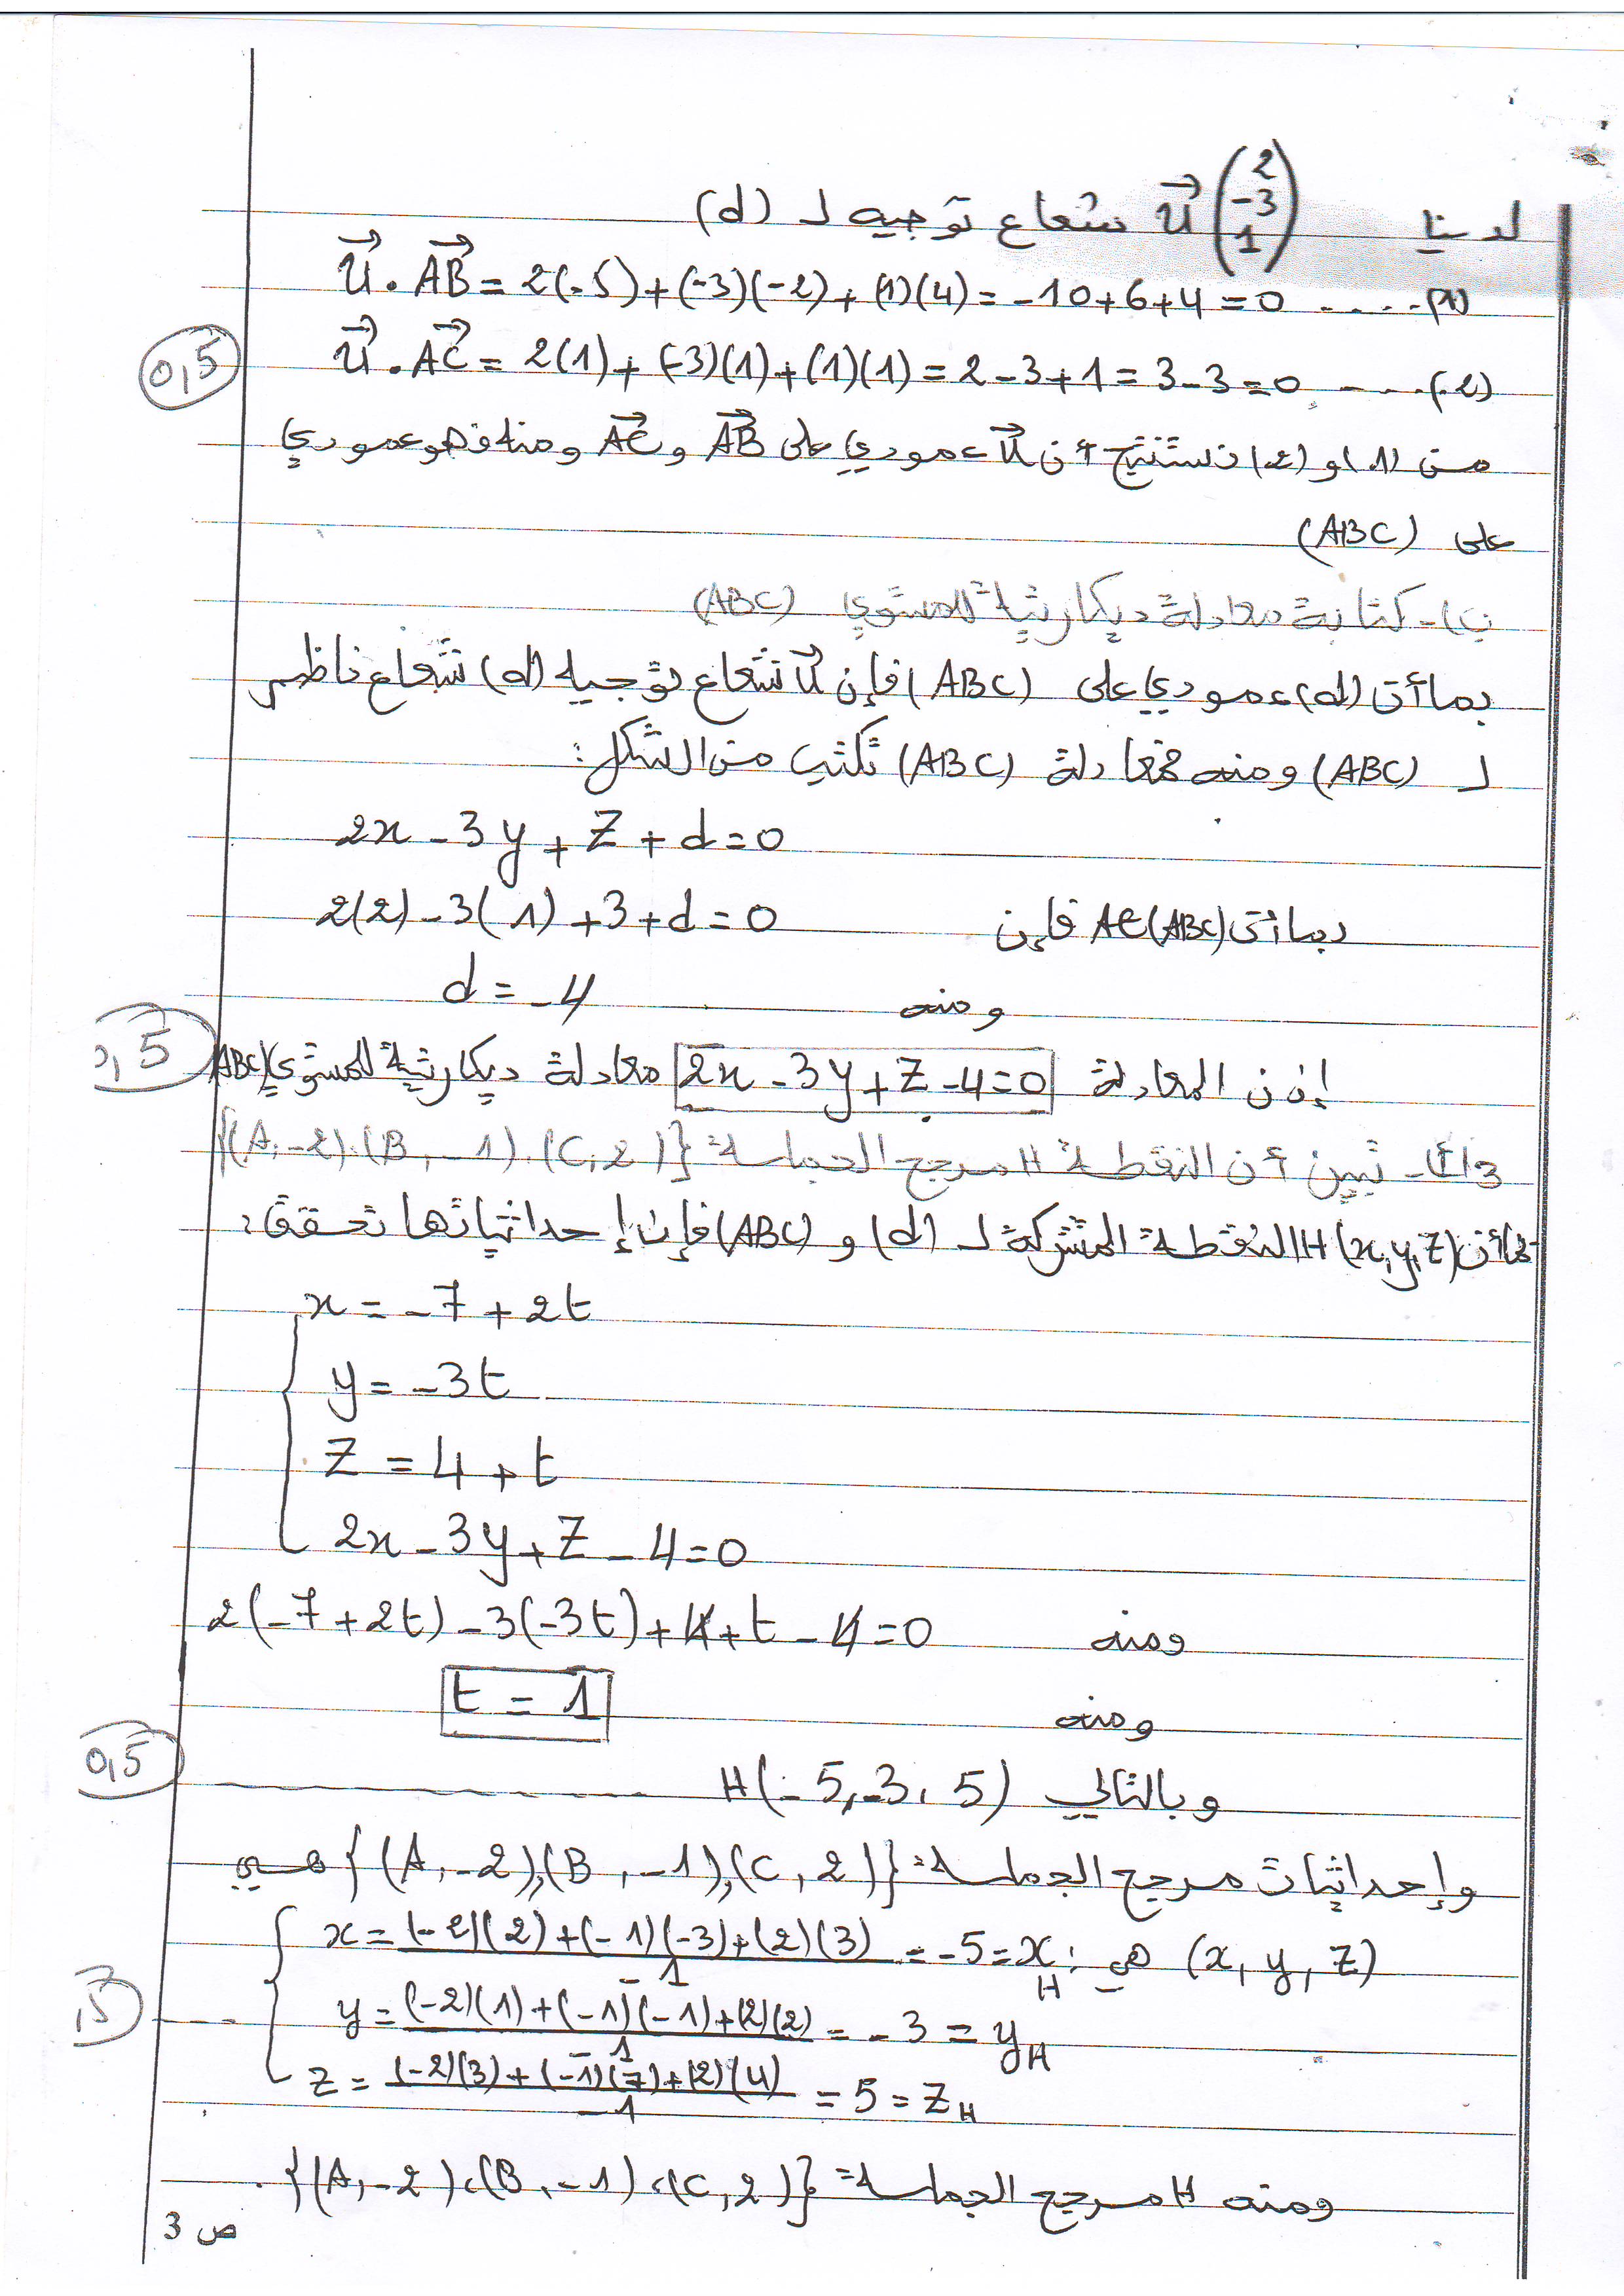 لدينا u⃗ (2 -3 1) شعاع توجيه لـ (d)
u⃗ . AB⃗ = 2(-5)+(-3)(-2)+(1)(4) = -10+6+4 = 0 .....(1)
0,5
u⃗ . AC⃗ = 2(1)+(-3)(1)+(1)(1) = 2-3+1 = 3-3 = 0 .....(2)
من (1) و (2) نستنتج أن u⃗ عمودي على AB⃗ و AC⃗ ومنه فهو عمودي
على (ABC)
ب)- كتابة معادلة ديكارتية للمستوي (ABC)
بما أن (d) عمودي على (ABC) فإن u⃗ شعاع توجيه (d) شعاع ناظم
لـ (ABC) ومنه فمعادلة (ABC) تكتب من الشكل:
2x - 3y + z + d = 0
بما أن A∈(ABC) فإن 2(2) - 3(1) + 3 + d = 0
ومنه d = -4
0,5
إذن المعادلة 2x - 3y + z - 4 = 0 معادلة ديكارتية للمستوي (ABC)
3)أ- تبين أن النقطة H مرجح الجملة {(A,-2).(B,-1).(C,2)}
بما أن H(x,y,z) النقطة المشتركة لـ (d) و (ABC) فإن إحداثياتها تحقق:
x = -7 + 2t
y = -3t
z = 4 + t
2x - 3y + z - 4 = 0
ومنه 2(-7+2t) - 3(-3t) + 4 + t - 4 = 0
ومنه t = 1
0,5
وبالتالي H(-5,-3,5)
وإحداثيات مرجح الجملة {(A,-2),(B,-1),(C,2)} هي
(x,y,z) هي: x = (-2)(2)+(-1)(-3)+(2)(3) / -1 = -5 = x_H
y = (-2)(1)+(-1)(-1)+(2)(2) / -1 = -3 = y_H
z = (-2)(3)+(-1)(7)+(2)(4) / -1 = 5 = z_H
ومنه H مرجح الجملة {(A,-2),(B,-1),(C,2)}.
ص 3